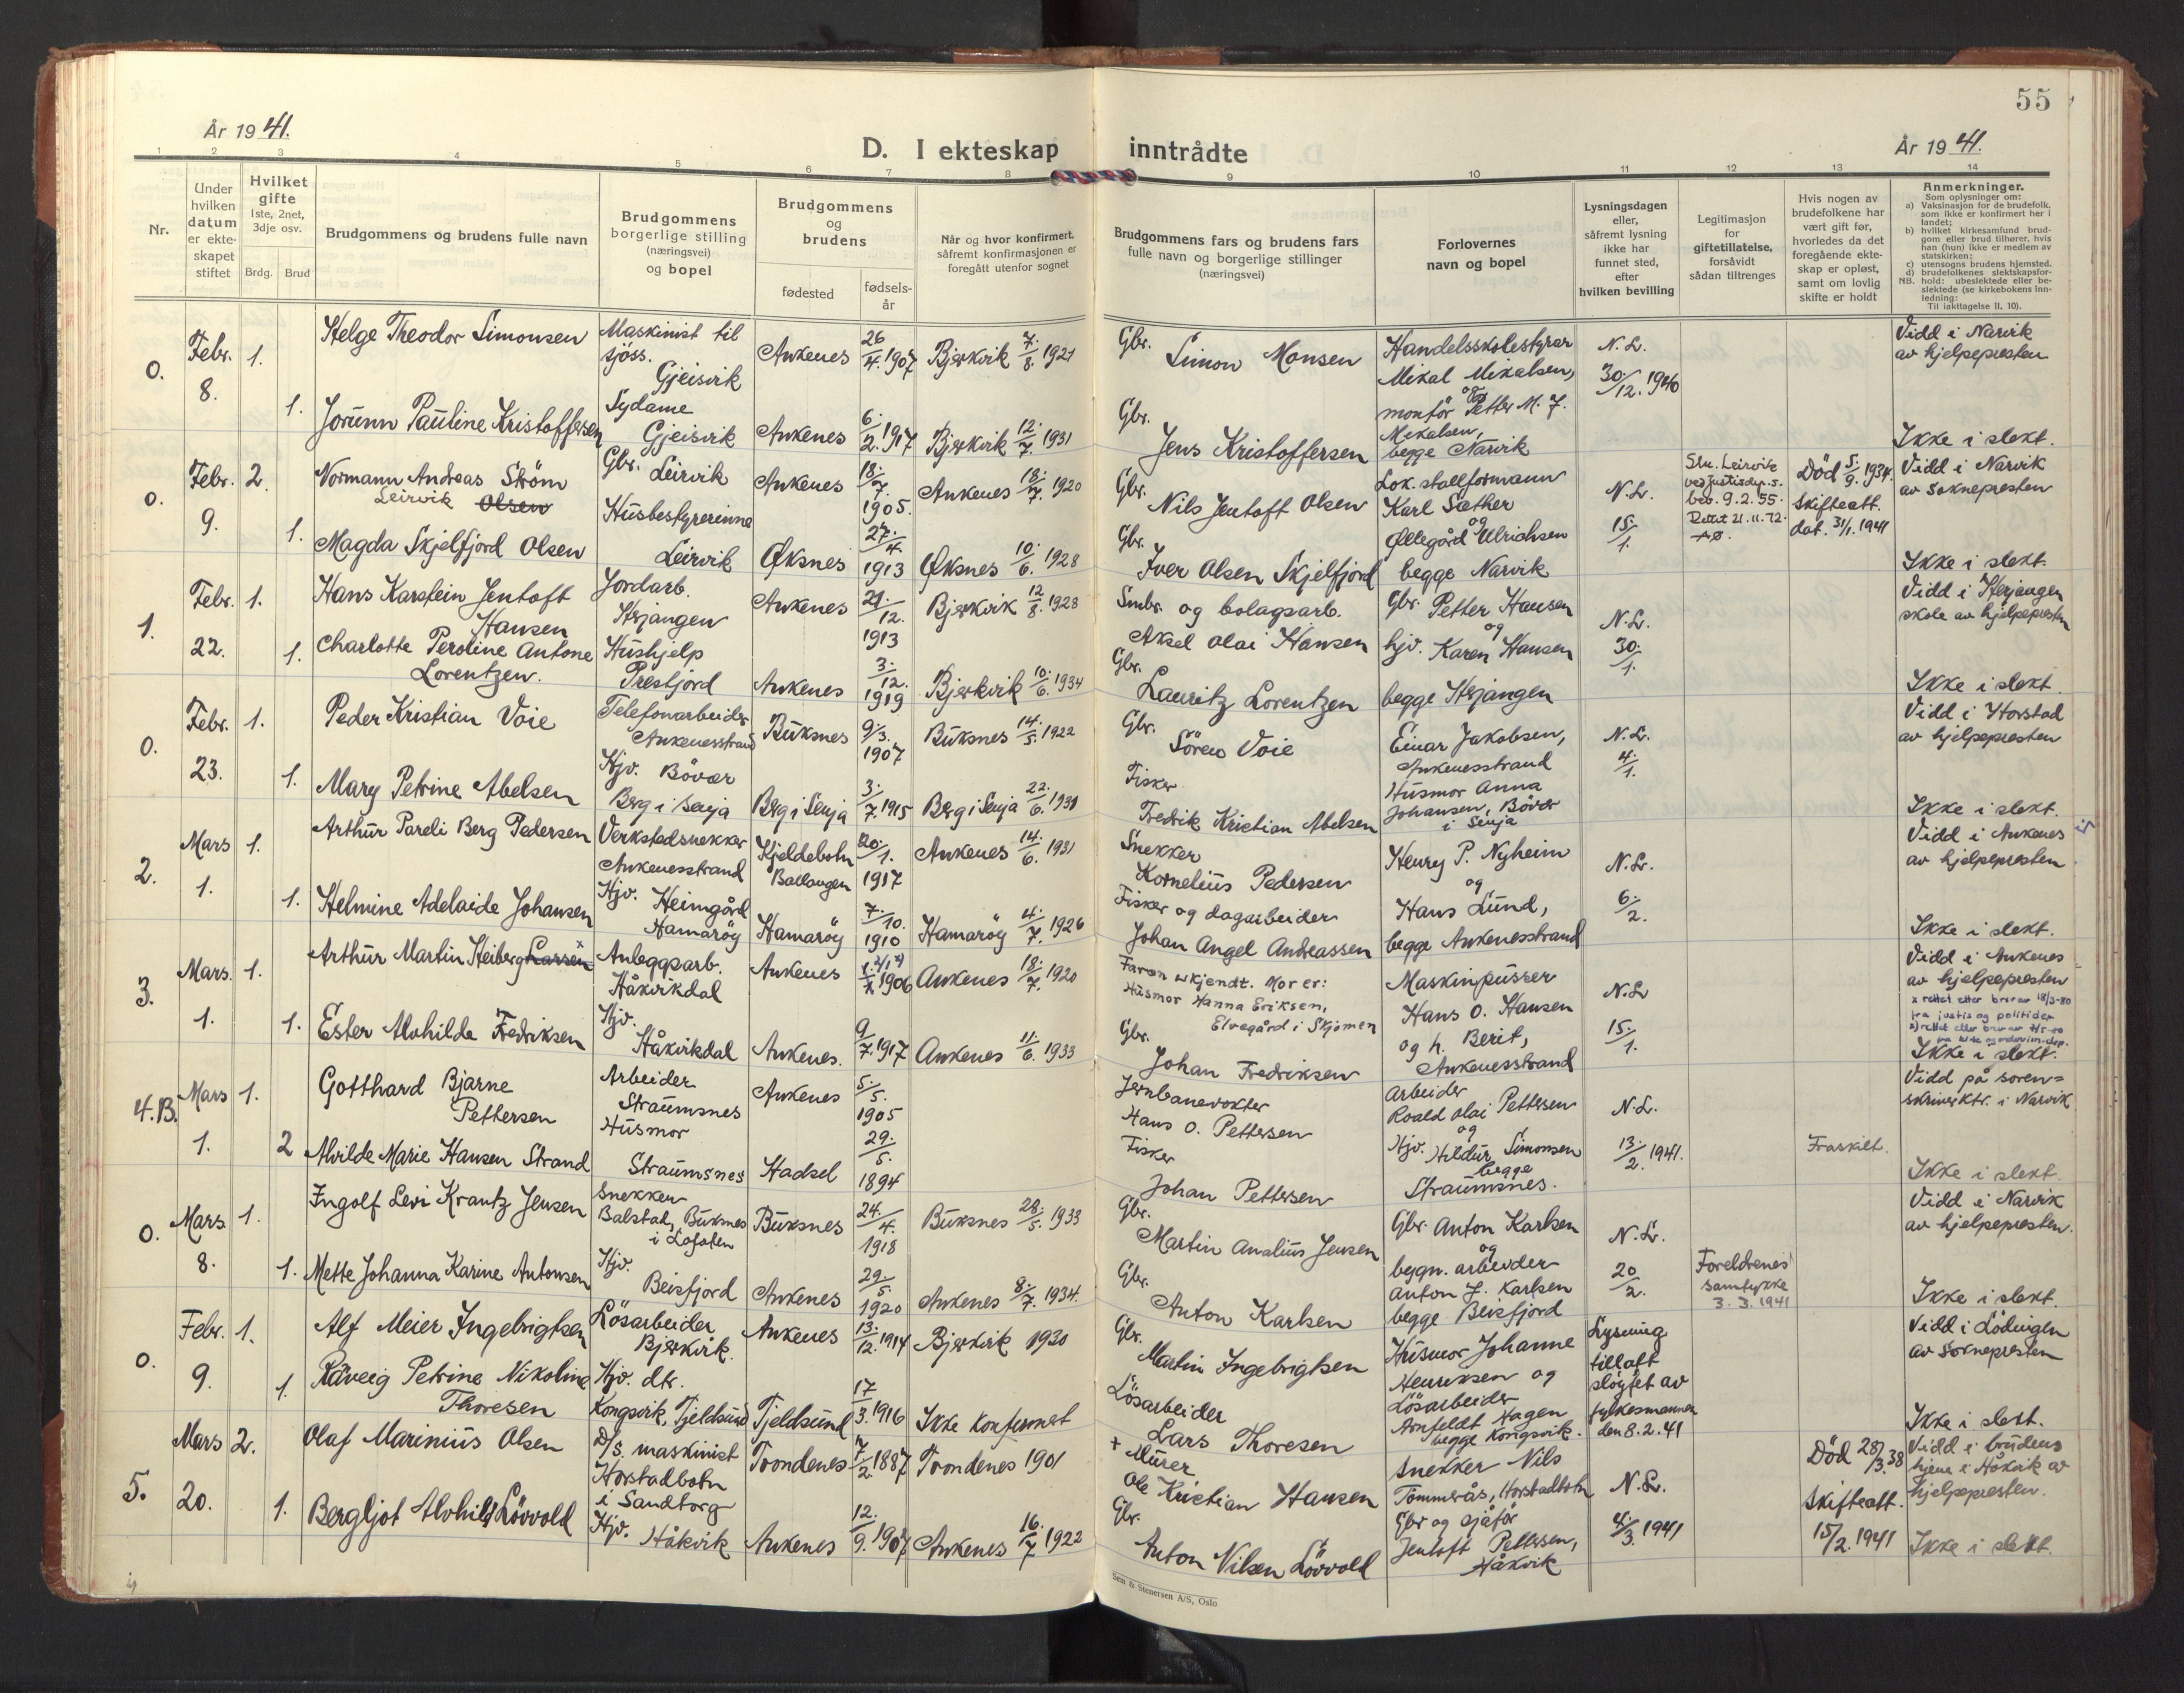 55
År 1941.
D. I ekteskap inntrådte
År 1941.
1 2 3 4 5 6 7 8 9 10 11 12 13 14
Nr.
Under hvilken datum er ekteskapet stiftet
Hvilket gifte
1ste, 2net, 3dje osv.
Brdg. Brud
Brudgommens og brudens fulle navn
Brudgommens borgerlige stilling (næringsvei) og bopel
Brudgommens og brudens
fødested
fødselsår
Når og hvor konfirmert, såfremt konfirmasjonen er foregått utenfor sognet
Brudgommens fars og brudens fars fulle navn og borgerlige stillinger (næringsvei)
Forlovernes navn og bopel
Lysningsdagen eller, såfremt lysning ikke har funnet sted, efter hvilken bevilling
Legitimasjon for giftetillatelse, forsåvidt sådan tiltrenges
Hvis nogen av brudefolkene har vært gift før, hvorledes da det foregående ekteskap er opløst, samt om lovlig skifte er holdt
Anmerkninger.
Som oplysninger om:
a) Vaksinasjon for de brudefolk, som ikke er konfirmert her i landet;
b) hvilket kirkesamfund brudgom eller brud tilhører, hvis han (hun) ikke er medlem av statskirken;
c) utensogns brudens hjemsted.
d) brudefolkenes slektskapsforhold: ubeslektede eller beslektede (se kirkebokens Innledning:
NB. Til iakttagelse II, 10).
0. Febr. 8. 1. Helge Theodor Simonsen Maskinist til sjöss. Gjeisvik Ankenes 26/4. 1907 Bjerkvik 7./8. 1921 Gbr. Simon Monsen Handelsskolestyrar Mikal Mikalsen, og N.L. 30./12. 1940 Vidd i Narvik av hjelpepresten
1. Jorünn Paüline Kristoffersen Sydame Gjeisvik Ankenes 6./2. 1917 Bjerkvik 12./7. 1931 Gbr. Jens Kristoffersen montör Petter M. J. Mikalsen, begge Narvik Ikke i slekt.
0. Febr. 9. 2. Normann Andreas Ström Leirvik Olsen Gbr. Leirvik Ankenes 18./7. 1905. Ankenes 18./7. 1920 Gbr. Nils Jentoft Olsen Lok. stallformann Karl Sæther og N.L. 15./1. Sln. Leirvik ved Justisdep. s. bev. 9.2.55. Rettet 21.11.72. AØ. Död 5/9. 1934. Skifteatt. dat. 31/1. 1941 Vidd i Narvik av soknepresten
1. Magda Skjelfjord Olsen Hüsbestyrerinne Leirvik Øksnes 27./4. 1913 Øksnes 10./6. 1928 Gbr. Iver Olsen Skjelfjord Øllegård Ulrichsen begge Narvik Ikke i slekt.
1. Febr. 22. 1. Hans Karstein Jentoft Hansen Jordarb. Herjangen Ankenes 21./12. 1913 Bjerkvik 12/8. 1928 Smbr. og bolagsarb. Aksel Olai Hansen Gbr. Petter Hansen og N.L. 30./1. Vidd i Herjangen skole av hjelpepresten
1. Charlotte Peroline Antone Lorentzen. Hüshjelp Prestjord Ankenes 3./12. 1919 Bjerkvik 10./6. 1934 Gbr. Lauritz Lorentzen hjv. Karen Hansen begge Herjangen Ikke i slekt.
0. Febr. 23. 1. Peder Kristian Voie Telefonarbeider Ankenesstrand Büksnes 9./3. 1907 Büksnes 14./5. 1922 Gbr. Sören Voie Einar Jakobsen, Ankenesstrand N.L. 4./1. Vidd i Harstad av hjelpepresten
1. Mary Petrine Abelsen Hjv. Bövær Berg i Senja Berg i Senja 3./7. 1915 Berg i Senja 22./6. 1930 Fisker Fredrik Kristian Abelsen Hüsmor Anna Johansen, Bövær i Senja Ikke i slekt.
2. Mars 1. 1. Arthür Pareli Berg Pedersen Verkstedsnekker Ankenesstrand Kjeldebotn Ballangen 20./1. 1917 Ankenes 14./6. 1931 Snekker Kornelius Pedersen Henry P. Nyheim og N.L. 6./2. Vidd i Ankenes av hjelpepresten
1. Helmine Adelaide Johansen Hjv. Heimgård Hamaröy Hamaröy 7./10. 1910 Hamaröy 4./7. 1926 Fisker og dagarbeider Johan Angel Andreassen Hans Lund, begge Ankenesstrand Ikke i slekt.
3. Mars. 1. 1. Arthür Martin Heiberg Larsen x Anleggsarb. Håkvikdal Ankenes 1906 Ankenes 18./7. 1920 Faren ukjendt. Mor er: Hüsmor Hanna Eriksen, Elvegård i Skjomen Maskinpüsser Hans O. Hansen N.L. 15./1. Vidd i Ankenes av hjelpepresten x rettet etter brev av 18/3-80 fra justis og politidep
1. Ester Alvhilde Fredriksen Hjv. Håkvikdal Ankenes. 9/7. 1917 Ankenes 11./6. 1933 Gbr. Johan Fredriksen og h. Berit, Ankenesstrand Ikke i slekt.
4.B. Mars 1. 1. Gotthard Bjarne Pettersen Arbeider Straumsnes Ankenes 5./5. 1905 Jernbanevokter Hans O. Pettersen Arbeider Roald Olai Pettersen og N.L. 13./2. 1941. Vidd på sorenskriverktr. i Narvik
2 Alvilde Marie Hansen Strand Hüsmor Straumsnes Hadsel 29./5. 1894 Fisker Johan Pettersen Hjv. Hildür Simonsen begge Straumsnes. Fraskilt. Ikke i slekt.
0. Mars 8. 1. Ingolf Levi Krantz Jensen Snekker Balstad, Büksnes i Lofoten Büksnes 24./4. 1918 Büksnes 28./5. 1933 Gbr. Martin Analiüs Jensen Gbr. Anton Karlsen og N.L. 20/2. Foreldrenes samtykke 3.3.1941 Vidd i Narvik av hjelpepresten.
1. Mette Johanna Karine Antonsen Hjv. Beisfjord Ankenes 29./5. 1920 Ankenes 8./7. 1934. Gbr. Anton Karlsen bygn. arbeider Anton J. Karlsen begge Beisfjord Ikke i slekt.
0. Febr. 9. 1. Alf Meier Ingebrigtsen Lösarbeider Bjerkvik. Ankenes 13./12. 1914 Bjerkvik 1930 Gbr. Martin Ingebrigtsen Hüsmor Johanne Henriksen og Lysning tillatt slöyfet av fylkesmannen den 8.2.41 Vidd i Lödingen av soknepresten
1. Petrine Nikoline Thoresen Hjv. dtr. Kongsvik, Tjeldsund Tjeldsund 17/3. 1916 Ikke konfirmert Lösarbeider Lars Thoresen Lösarbeider Arnfeldt Hagen begge Kongsvik. Ikke i slekt.
5. Mars 20. 2. Olaf Marinius Olsen D/s. maskinist Harstadbotn i Sandtorg Trondenes 7/2. 1887 Trondenes 1901 + Mürer Ole Kristian Hansen Snekker Nils Tömmerås, Harstadbotn N.L. 4./3. 1941 Död 28/3. 38 Skifteatt. 15/2. 1941 Vidd i brudens hjem i Håkvik av hjelpepresten.
1. Bergljot Alvhild Lövvold Hjv. Håkvik Ankenes 12./9. 1907 Ankenes 16./7 1922 Gbr. Anton Nilsen Lövvold Gbr og sjåför Jentoft Pettersen, Håkvik Ikke i slekt.
Sem & Stenersen A/S, Oslo